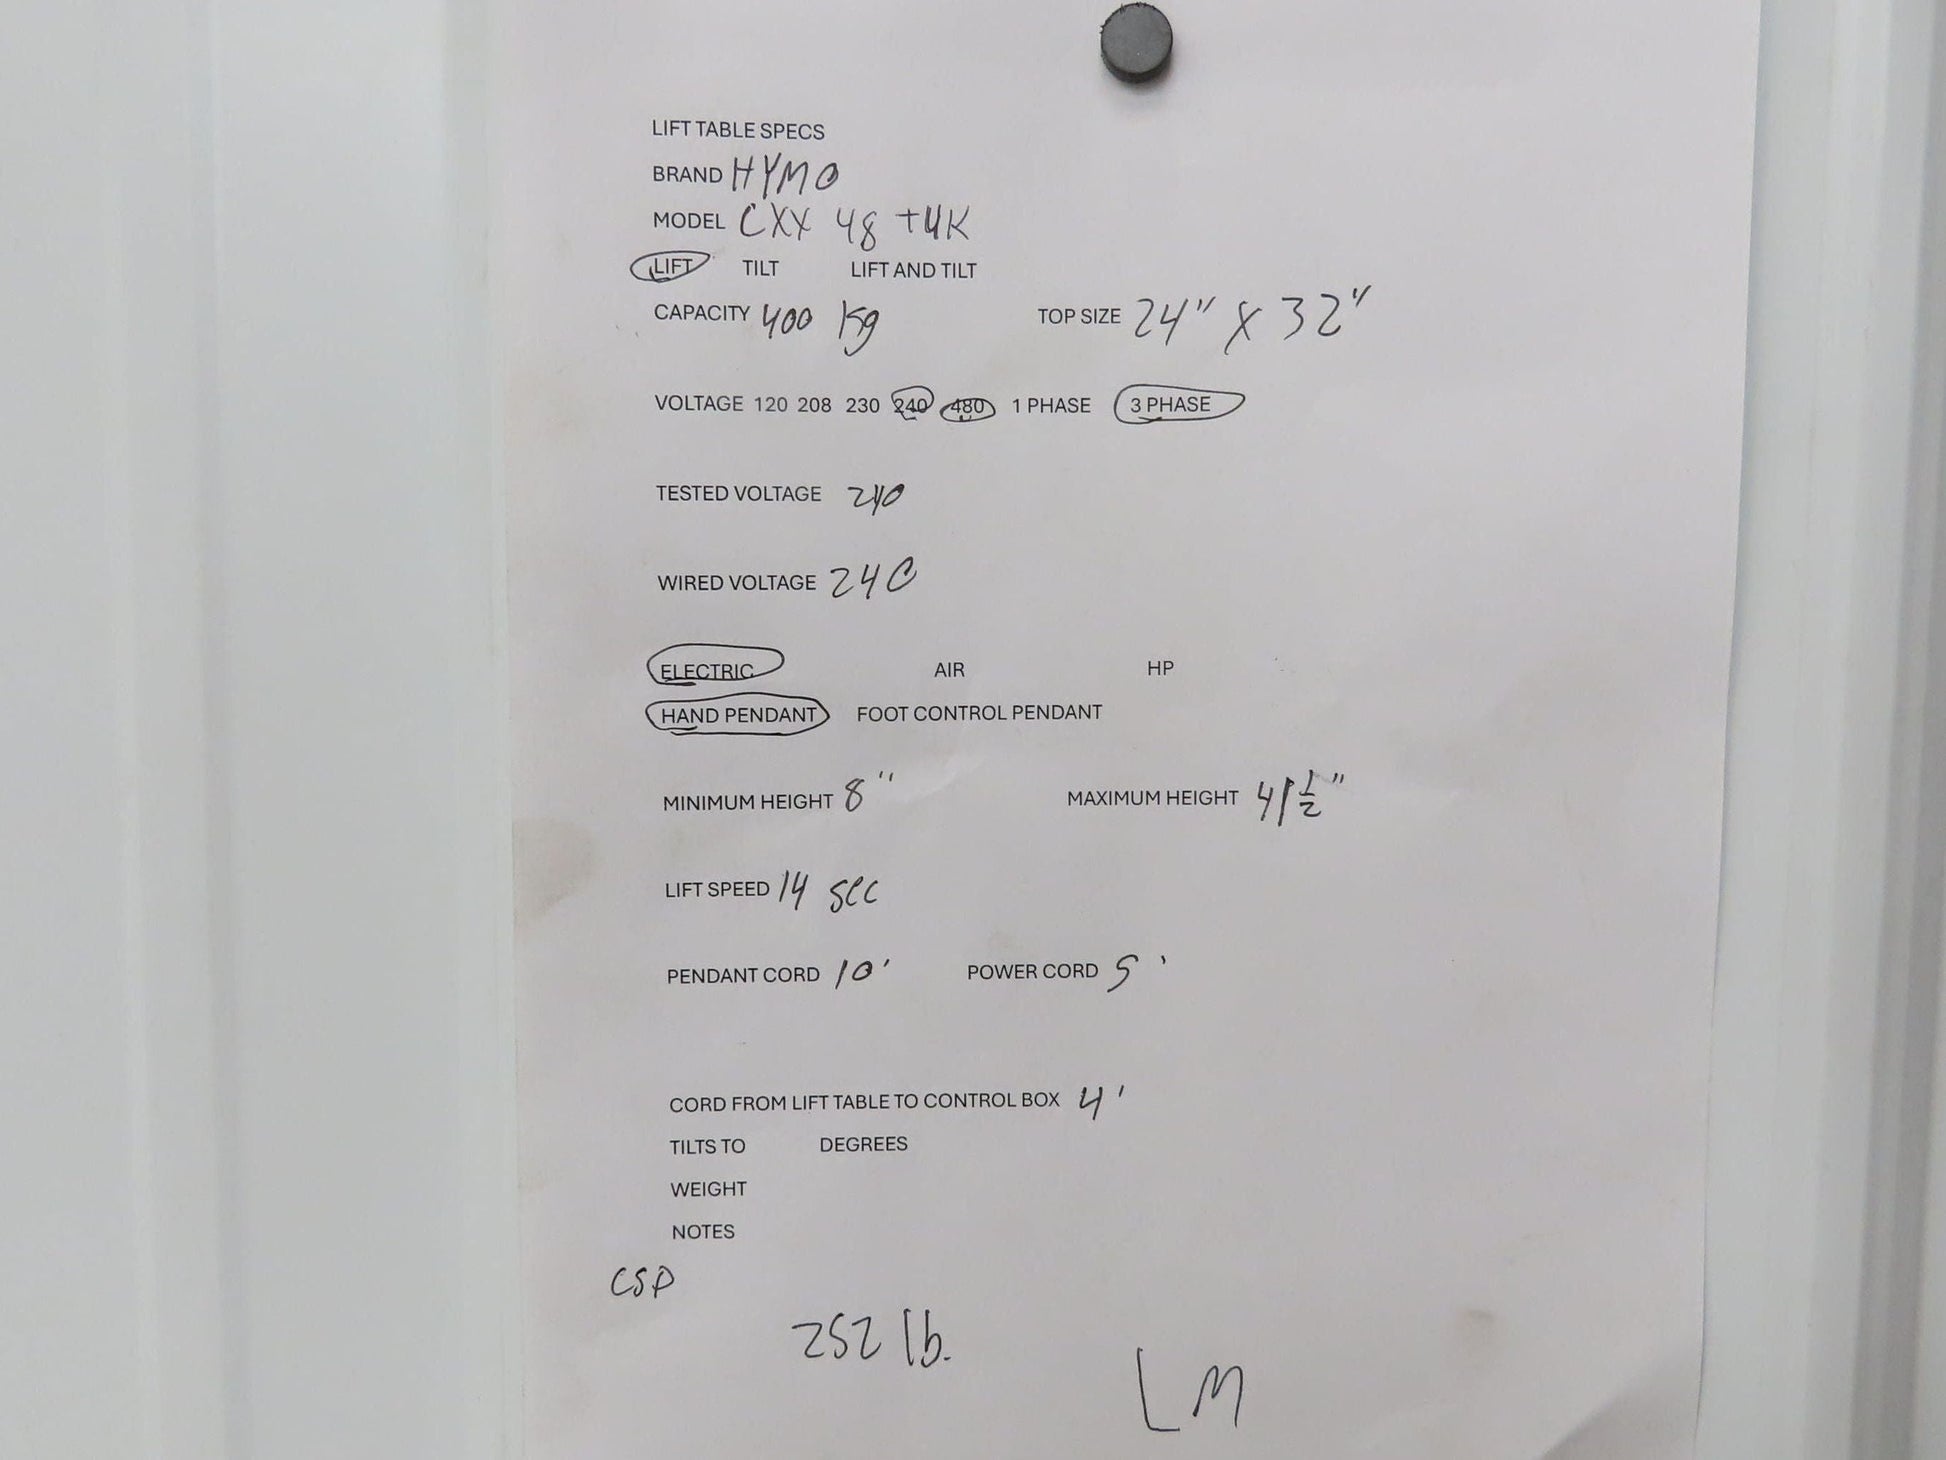 LIFT TABLE SPECS
BRAND HYMO
MODEL CXX 48 T4K
LIFT TILT LIFT AND TILT
CAPACITY 400 Kg TOP SIZE 24" X 32"
VOLTAGE 120 208 230 240 480 1 PHASE 3 PHASE
TESTED VOLTAGE 240
WIRED VOLTAGE 240
ELECTRIC AIR HP
HAND PENDANT FOOT CONTROL PENDANT
MINIMUM HEIGHT 8" MAXIMUM HEIGHT 41 1/2"
LIFT SPEED 14 sec
PENDANT CORD 10' POWER CORD 5'
CORD FROM LIFT TABLE TO CONTROL BOX 4'
TILTS TO DEGREES
WEIGHT
NOTES
CSP
252 lb.
LM